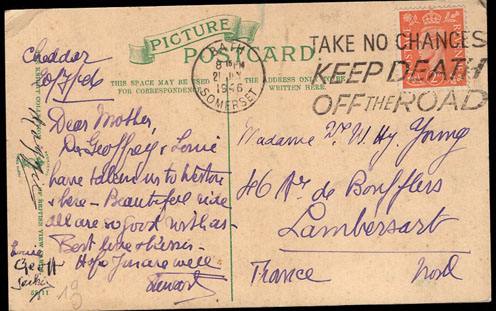 PICTURE
POSTCARD
THIS SPACE MAY BE USED
FOR CORRESPONDENCE.
THE ADDRESS ONLY TO BE
WRITTEN HERE.
BATH
1946
SOMERSET
TAKE NO CHANCES
KEEP DEATH
OFF THE ROAD
Cheddar
Dear Mother,
Geoffrey &
have taken us to Weston
& here - Beautiful ride
all are so good with us -
Best love & kisses -
Hope you are well
Madame Hy. Young
46 Av. de Boufflers
Lambersart
France Nord
19